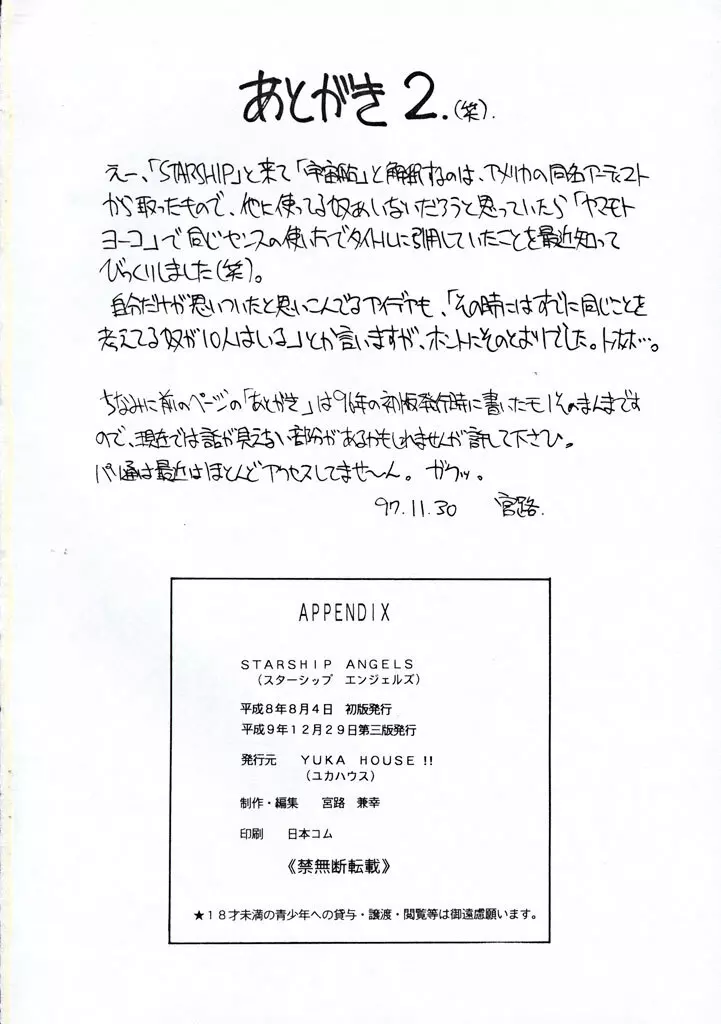 あとがき 2.(笑).
えー、「STARSHIP」と来て「宇宙船」と解釈するのは、アメリカの同名アーティスト
から取ったもので、他に使ってる奴ぁいないだろうと思っていたら「ヤマモト
ヨーコ」で同じセンスの使い方でタイトルに引用していたことを最近知って
びっくりしました(笑)。
自分だけが思いついたと思いこんでるアイデアも、「その時にはすでに同じことを
考えてる奴が10人はいる」とか言いますが、ホントにそのとおりでした。トホホ…。
ちなみに前のページの「あとがき」は96年の初版発行時に書いたモノそのまんまです
ので、現在では話が見えない部分があるかもしれませんが許して下さひ。
パソ通は最近はほとんどアクセスしてませ〜ん。ガクッ。
97.11.30 宮路.
APPENDIX
STARSHIP ANGELS
(スターシップ エンジェルズ)
平成8年8月4日 初版発行
平成9年12月29日第三版発行
発行元 YUKA HOUSE!!
(ユカハウス)
制作・編集 宮路 兼幸
印刷 日本コム
《禁無断転載》
★18才未満の青少年への貸与・譲渡・閲覧等は御遠慮願います。